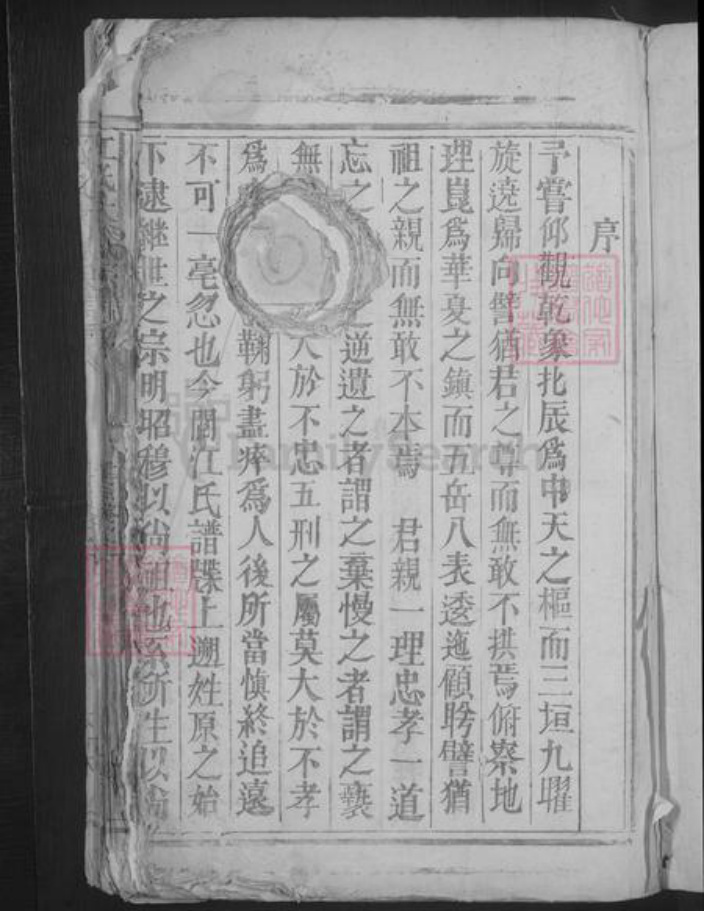 序
予嘗仰觀乾象北辰爲中天之樞而三垣九曜
旋遶歸向譬猶君之尊而無敢不拱焉俯察地
理崑爲華夏之鎮而五岳八表逶迤顧盻譬猶
祖之親而無敢不本焉 君親一理忠孝一道
忘之 逆遺之者謂之棄慢之者謂之褻
無 大於不忠五刑之屬莫大於不孝
爲 鞠躬盡瘁爲人後所當慎終追遠
不可一毫忽也今閱江氏譜牒上遡姓原之始
下逮繼世之宗明昭穆以尚祖也系所生以
FamilySearch